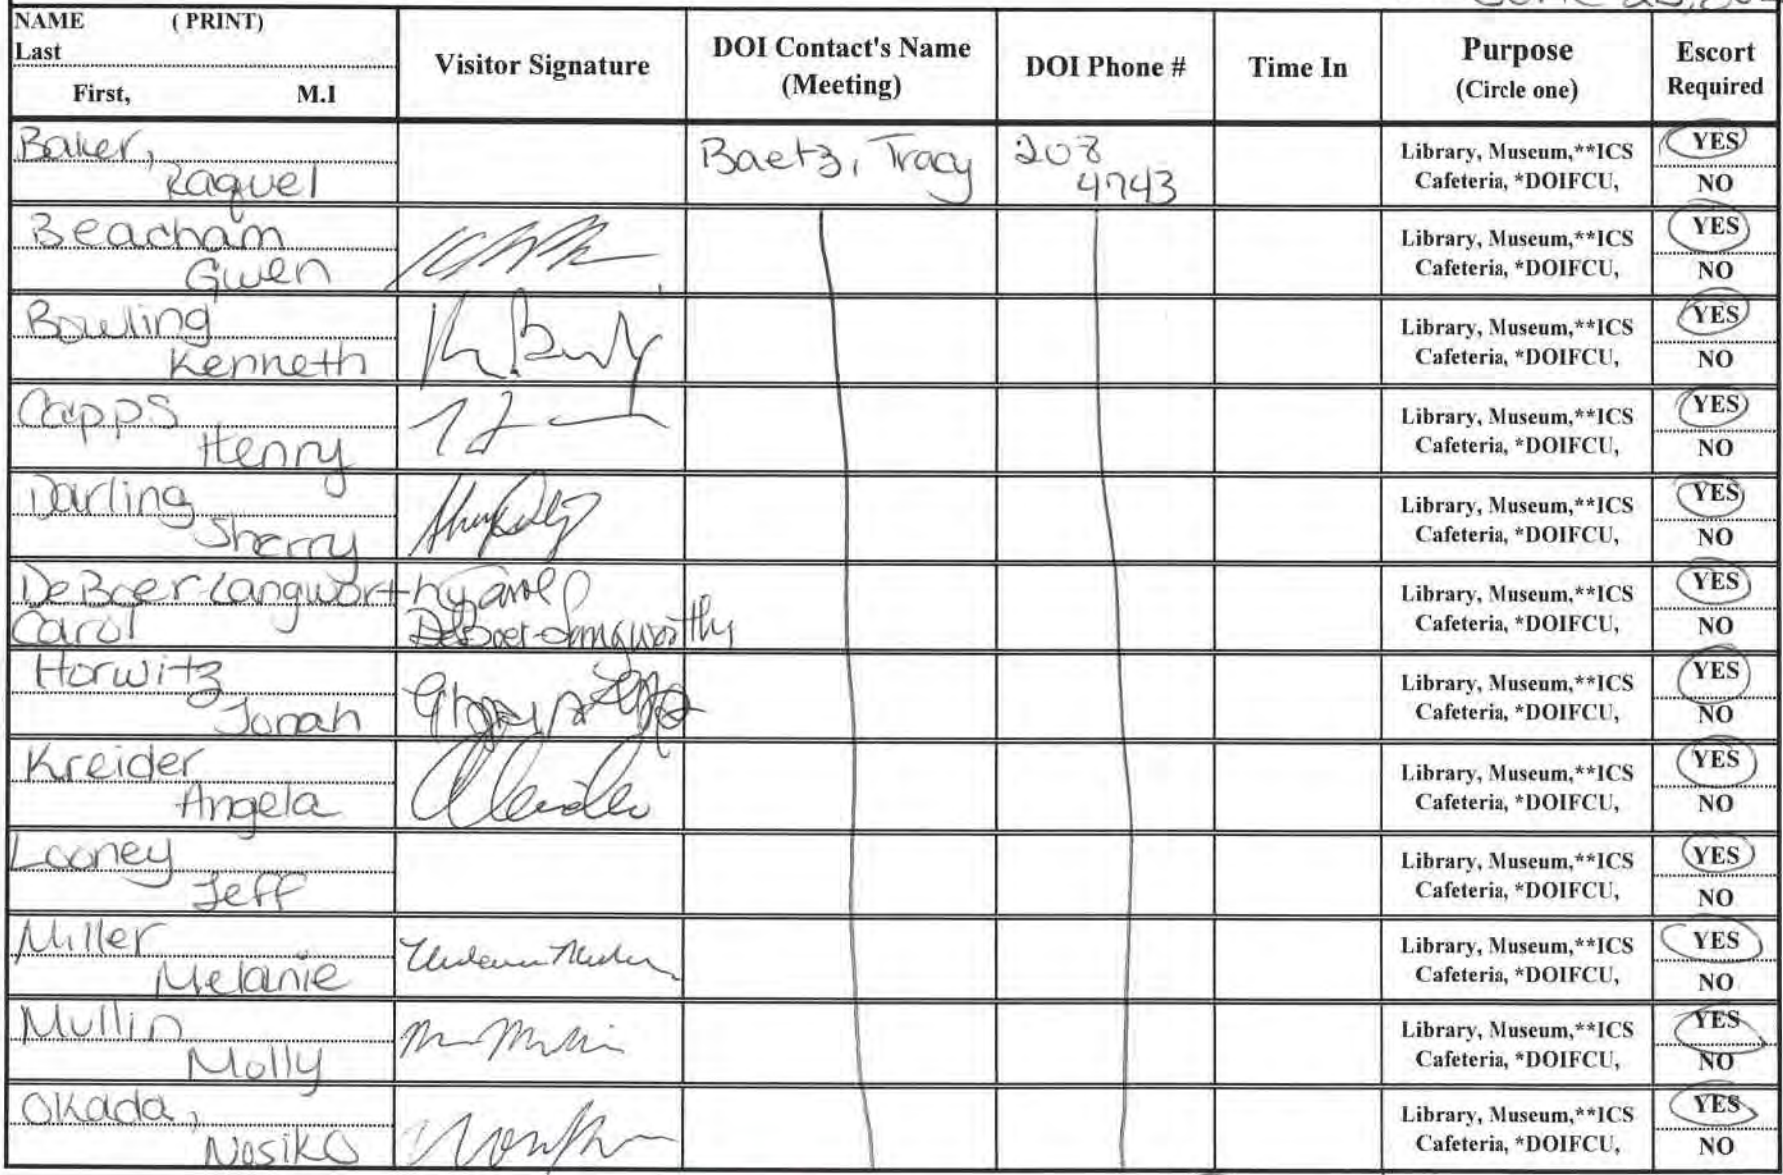 NAME ( PRINT)
Last
First, M.I
Visitor Signature
DOI Contact's Name
(Meeting)
DOI Phone #
Time In
Purpose
(Circle one)
Escort
Required
Baker,
Raquel
Baetz, Tracy
208
4743
Library, Museum,**ICS
Cafeteria, *DOIFCU,
YES
NO
Beacham
Gwen
Library, Museum,**ICS
Cafeteria, *DOIFCU,
YES
NO
Bowling
Kenneth
Library, Museum,**ICS
Cafeteria, *DOIFCU,
YES
NO
Capps
Henry
Library, Museum,**ICS
Cafeteria, *DOIFCU,
YES
NO
Darling
Sherry
Library, Museum,**ICS
Cafeteria, *DOIFCU,
YES
NO
DeBoer-Langworthy
Carol
Carol
DeBoer-Langworthy
Library, Museum,**ICS
Cafeteria, *DOIFCU,
YES
NO
Horwitz
Jonah
Library, Museum,**ICS
Cafeteria, *DOIFCU,
YES
NO
Kreider
Angela
Library, Museum,**ICS
Cafeteria, *DOIFCU,
YES
NO
Looney
Jeff
Library, Museum,**ICS
Cafeteria, *DOIFCU,
YES
NO
Miller
Melanie
Library, Museum,**ICS
Cafeteria, *DOIFCU,
YES
NO
Mullin
Molly
Library, Museum,**ICS
Cafeteria, *DOIFCU,
YES
NO
Okada,
Nosiko
Library, Museum,**ICS
Cafeteria, *DOIFCU,
YES
NO